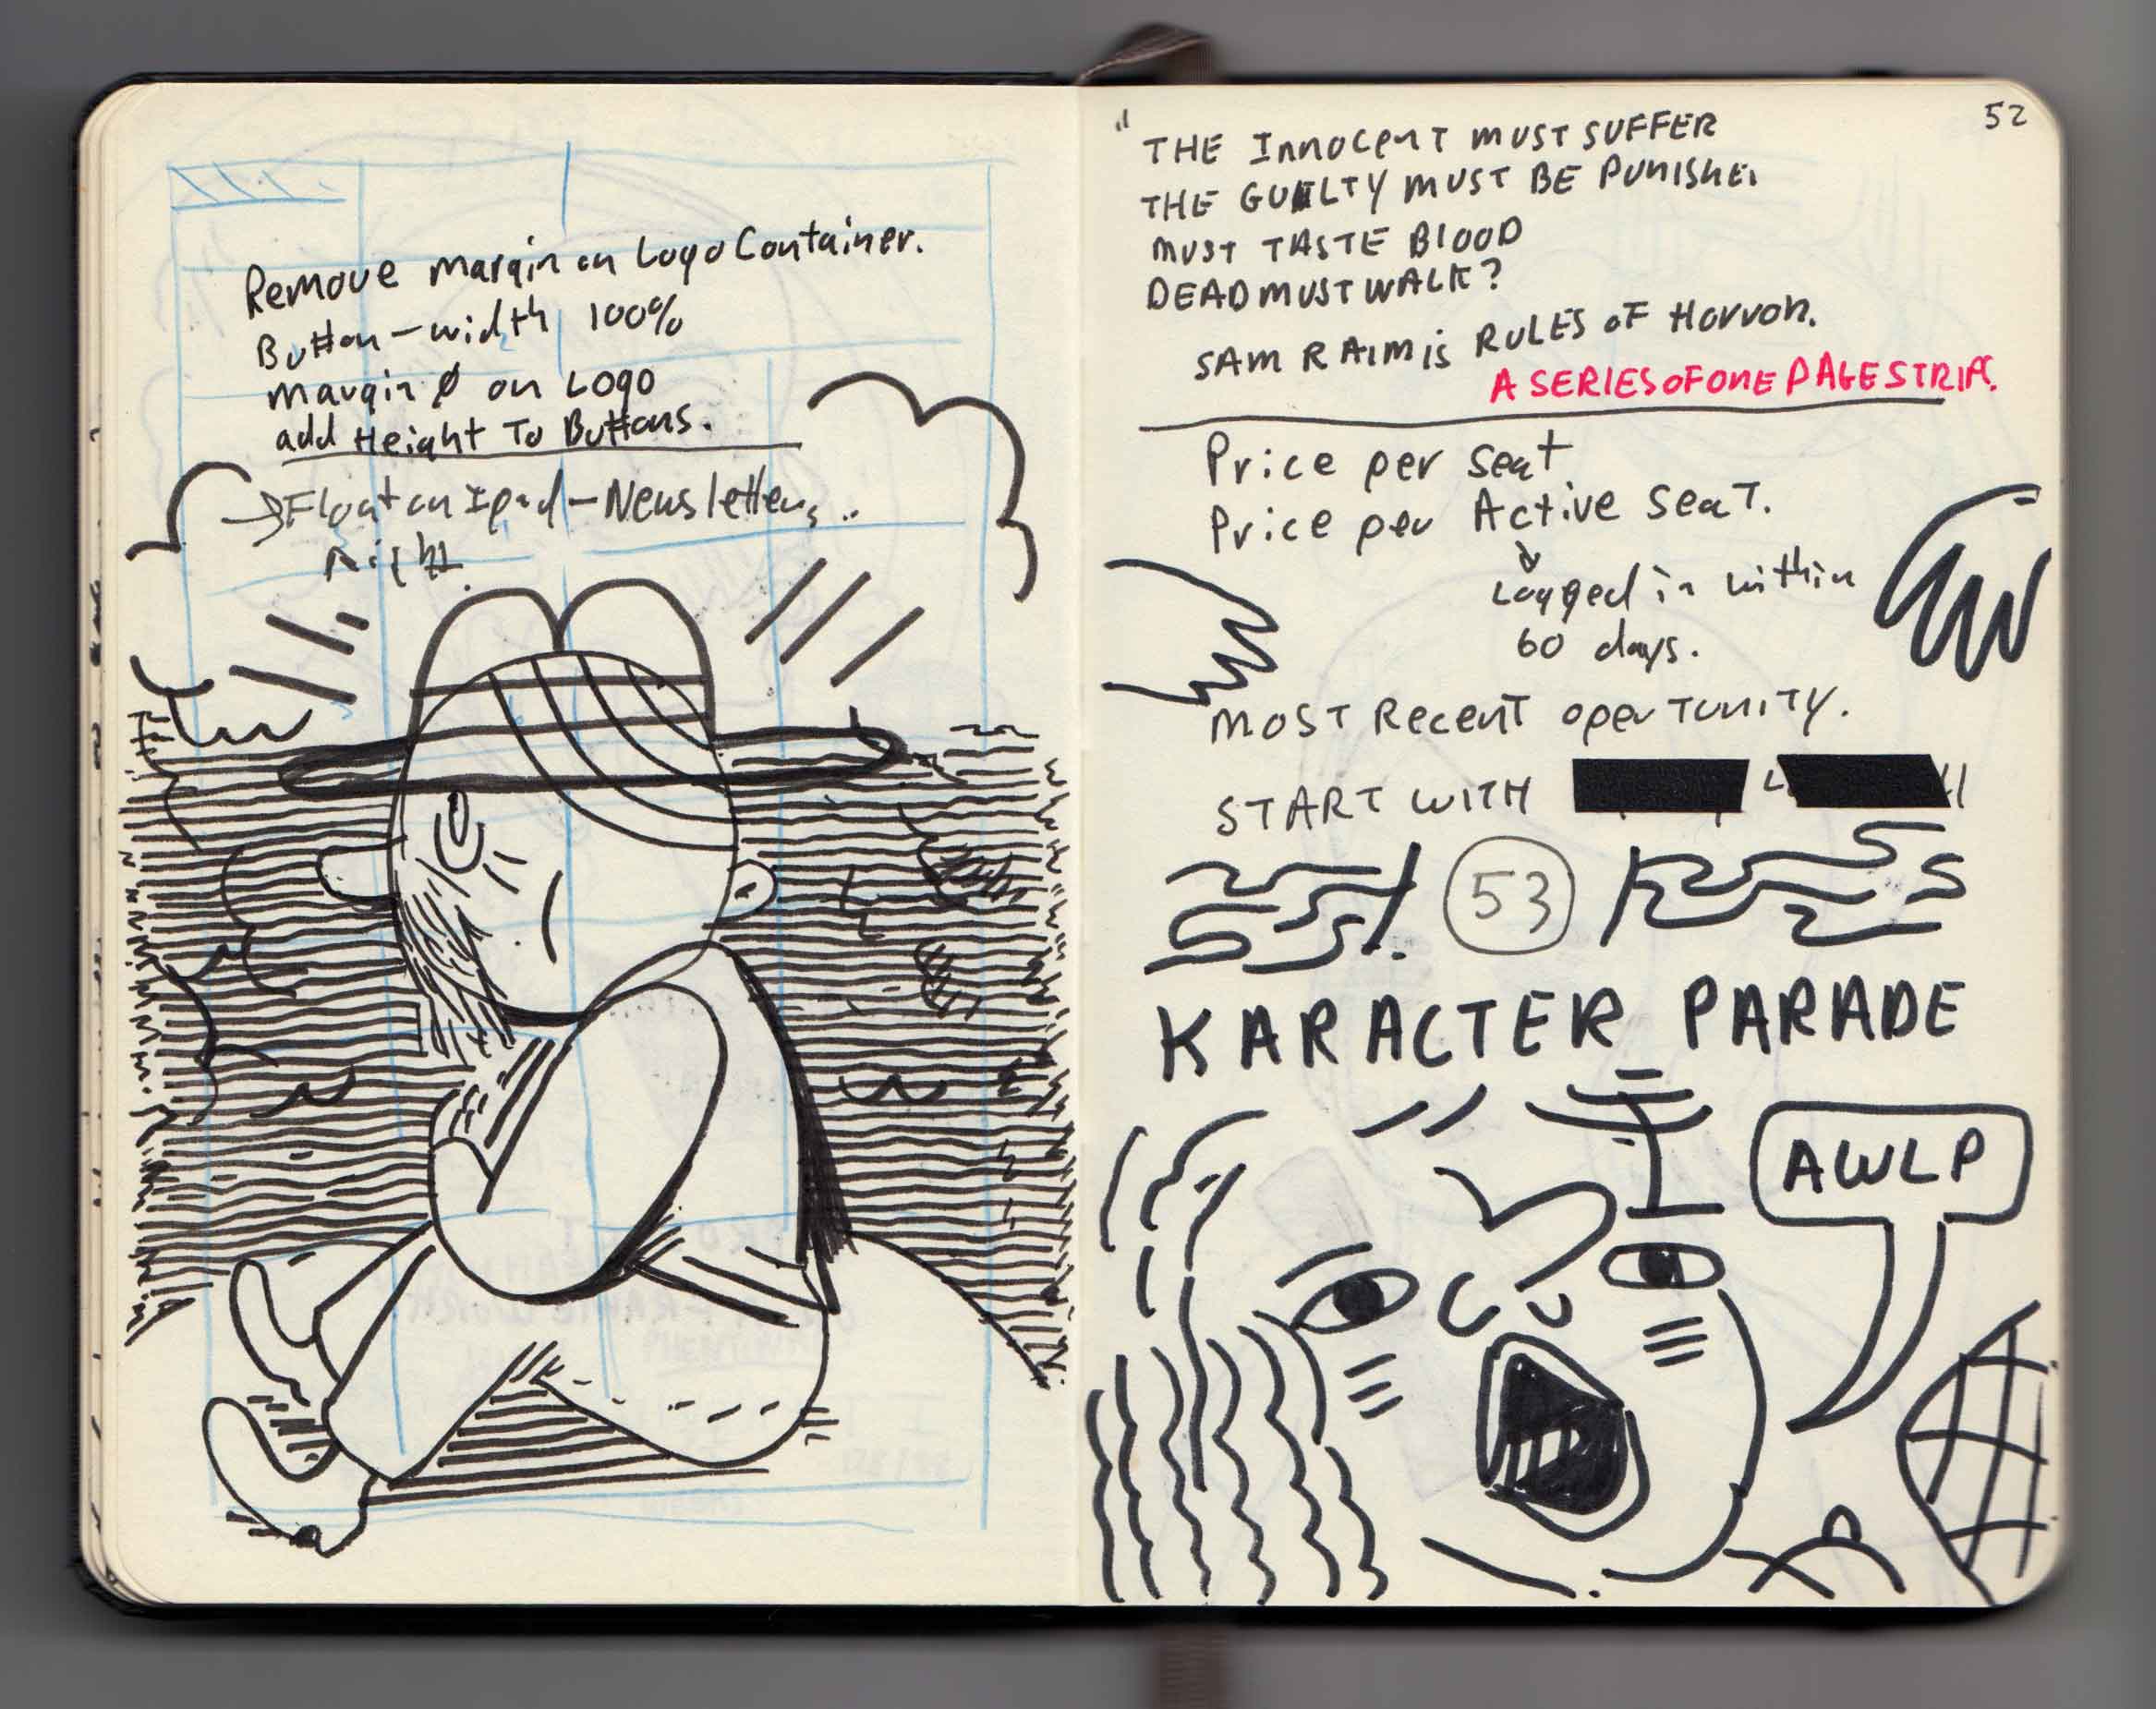 Remove margin on Logo Container.
Button-width 100%
margin 0 on Logo
add Height To Buttons.
→ Float on Ipad - Newsletters..
Right.
52
" THE InnocenT MUST SUFFER
THE GUILTY MUST BE PUNISHE
MUST TASTE BlOOD
DEAD MUST WALK?
SAM RAIMIs RULES OF Horror.
A SERIES OF ONE PAGE STRIPS.
Price per seat
Price per Active seat.
Logged in within
60 days.
MOST Recent opertunity.
START WITH
53
KARACTER PARADE
AWLP